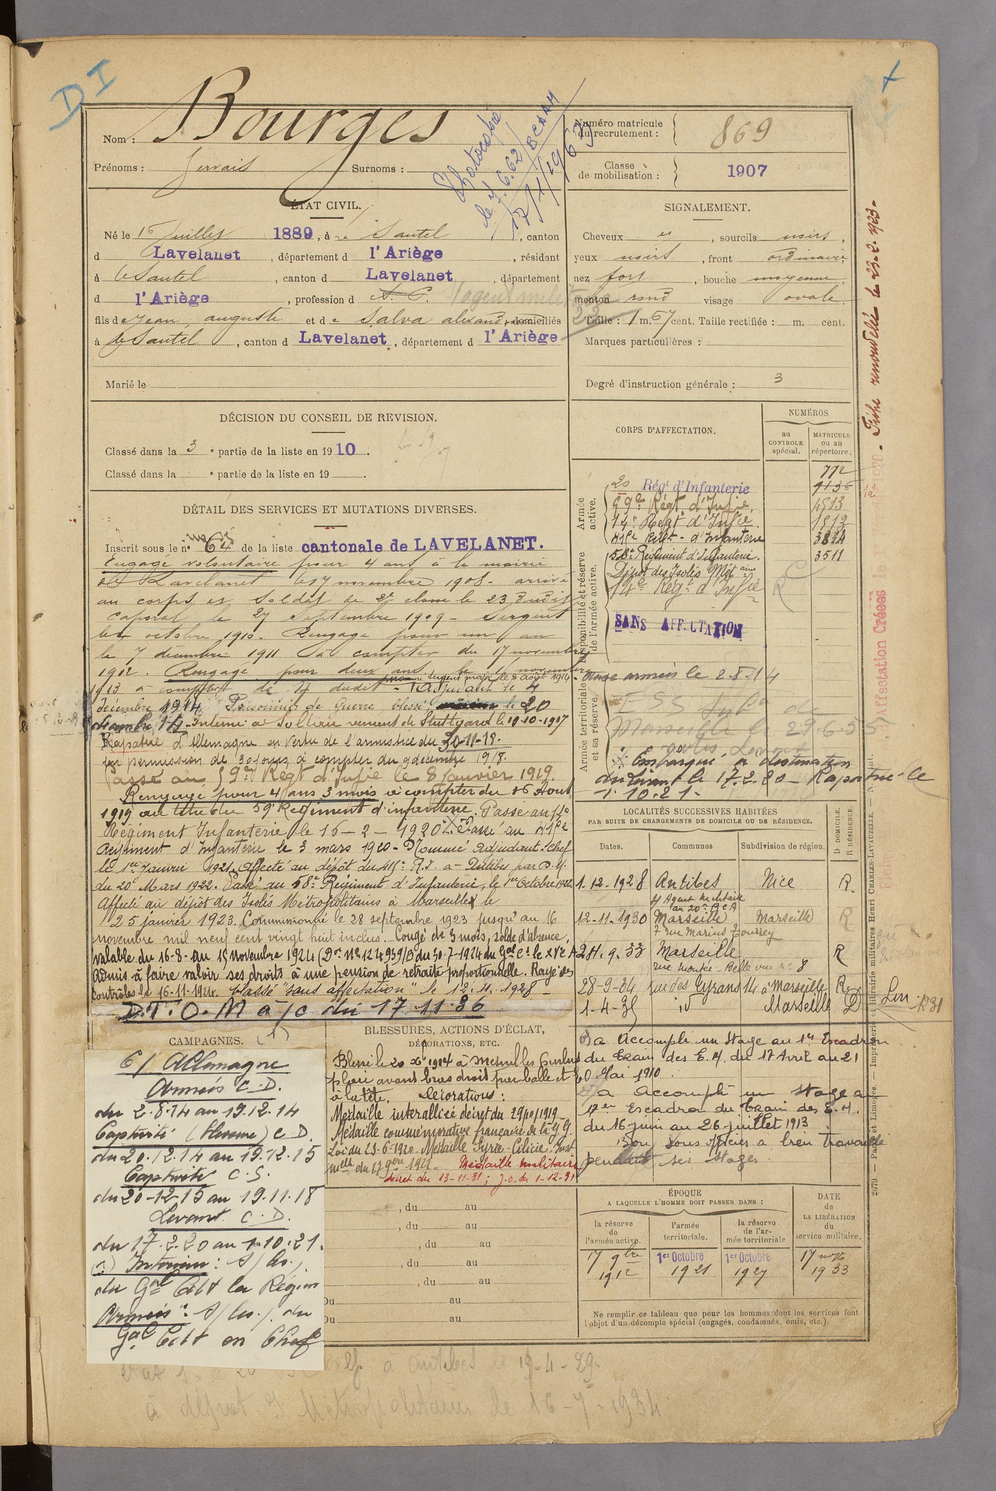 D I
Nom : Bourges
Prénoms : Gervais Surnoms :
Photocopié
le 7.6.62 / BCAAM
17/1/1963
Numéro matricule
du recrutement : 869
Classe
de mobilisation : 1907
ÉTAT CIVIL.
Né le 16 Juillet 1889, à Le Sautel, canton
d Lavelanet, département d l'Ariège, résidant
à Le Sautel, canton d Lavelanet, département
d l'Ariège, profession d
fils de Jean auguste et de Salva domiciliés
à Le Sautel, canton d Lavelanet, département d l'Ariège
Marié le
SIGNALEMENT.
Cheveux , sourcils noirs,
yeux noirs, front ordinaire
nez fort, bouche moyenne
menton rond visage ovale.
Taille : 1 m. 67 cent. Taille rectifiée : m. cent.
Marques particulières :
Degré d'instruction générale : 3
Fiche renouvelée le 23.2.1923.
DÉCISION DU CONSEIL DE REVISION.
Classé dans la 3e partie de la liste en 1910.
Classé dans la e partie de la liste en 19 .
CORPS D'AFFECTATION.
NUMÉROS
au CONTROLE spécial.
MATRICULE OU AU répertoire.
Armée active.
Rég. d'Infanterie
59e Régt d'Infie 1513
14e Régt d'Infie
Régt d'Infanterie 3814
58e Régiment d'Infanterie. 3511
Dépôt des Isolés Métains
14e Régt d'Infie
Disponibilité et réserve de l'armée active.
SANS AFFECTATION
Armée territoriale et sa réserve.
aux armées le 2-8-14
Embarqué à destination
du Levant le 17.2.20 - Rapatrié le
1.10.21.
DÉTAIL DES SERVICES ET MUTATIONS DIVERSES.
Inscrit sous le n° 64 de la liste cantonale de LAVELANET.
Engagé volontaire pour 4 ans à la mairie
de Lavelanet le 17 novembre 1908. arrivé
au corps et soldat de 2e classe le 23 dudit
caporal le 27 septembre 1909 - Sergent
le octobre 1910. Rengagé pour un an
le 7 décembre 1911 à compter du 17 novembre
1912. Rengagé pour deux ans le novembre
1913 à compter de 17 dudit - Adjudant le 4
décembre 1914. Prisonnier de Guerre blessé le 20
décembre 1914. Interné à Sollerie venant de Stuttgard le 10-10-1917
Rapatrié d'Allemagne en vertu de l'armistice du 20-11-18.
En permission de 30 jours à compter du 9 décembre 1918.
Passé au 59e Régt d'Infie le 8 Janvier 1919.
Rengagé pour 4 ans 3 mois à compter du 16 Aout
1919 au titre du 59e Régiment d'infanterie. Passé au 14e
Régiment Infanterie le 15-2-1920. Passé au
Régiment d'Infanterie le 3 mars 1920 - Nommé adjudant-chef
le 1er Janvier 1921. Affecté au dépôt du R.I. à Antibes par D.M.
du 20 Mars 1922. Passé au 58e Régiment d'Infanterie, le 1er Octobre 1922.
Affecté au dépôt des Isolés Métropolitains à Marseille le
25 janvier 1923. Commissionné le 28 septembre 1923 jusqu'au 16
novembre mil neuf cent vingt huit inclus. Congé de 3 mois, solde d'absence,
valable du 16-8- au 15 novembre 1924 (Don N° 124959/D du 30-7-1924 du Gal Ct le XVe C.A.)
Admis à faire valoir ses droits à une pension de retraite proportionnelle. Rayé des
contrôles le 16-11-1924. Classé "sans affectation" le 12.4.1928 -
D.T.O. M a/c du 17.11.36
LOCALITÉS SUCCESSIVES HABITÉES
PAR SUITE DE CHANGEMENTS DE DOMICILE OU DE RÉSIDENCE.
Dates. Communes Subdivision de région. D DOMICILE. R RÉSIDENCE.
1.12.1928 Antibes Nice R.
12-11-1930 Marseille Marseille R
7 rue Marius Jauffrey
24.9.33 Marseille R
rue Montée - Belle vue n° 8
28-9-34 rue des Tyrans 14 à Marseille R
1-4-35 id Marseille D
CAMPAGNES.
C/ Allemagne
Armées C.D.
du 2.8.14 au 19.12.14
Captivité (blessure) C.D.
du 20.12.14 au 19.12.15
Captivité C.S.
du 20-12-15 au 19.11.18
Levant C.D.
du 17.2.20 au 1.10.21.
Intérieur :
du Gal Cdt la Région
Armées : du
Gal Cdt en Chef
BLESSURES, ACTIONS D'ÉCLAT, DÉCORATIONS, ETC.
Blessé le 20 Xbre 1914 à Mesnil les Hurlus
plaie avant bras droit par balle et
à la tête. Décorations :
Médaille interalliée décret du 29/01/1919
Médaille commémorative française de la G.G.
Loi du 23-6-1920 - Médaille Syrie-Cilicie. Inst
Médaille militaire
décret du 13-11-31 ; J.O. du 1-12-31
a accompli un stage au 17e Escadron
du train des E.M. du 17 Avril au 21
Mai 1910.
a accompli un stage au
17e Escadron du train des E.M.
du 16 juin au 26 juillet 1913.
Bon sous officier a bien travaillé
pendant ses stages.
, du au
, du au
, du au
, du au
, du au
Du au
Du au
ÉPOQUE
A LAQUELLE L'HOMME DOIT PASSER DANS :
la réserve de l'armée active. l'armée territoriale. la réserve de l'armée territoriale
DATE DE LA LIBÉRATION du service militaire.
17 9bre 1912 1er Octobre 1921 1er Octobre 1927 17 nov. 1933
Ne remplir ce tableau que pour les hommes dont les services font
l'objet d'un décompte spécial (engagés, condamnés, omis, etc.).
2979. — Paris et Limoges. — Imprimerie et librairie militaires Henri CHARLES-LAVAUZELLE.
à dépôt I Métropolitains le 16-7-1934